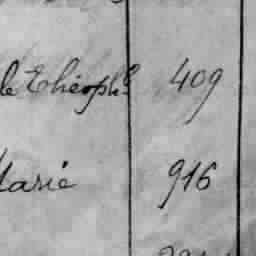 le Théoph.e 409
Marie 916